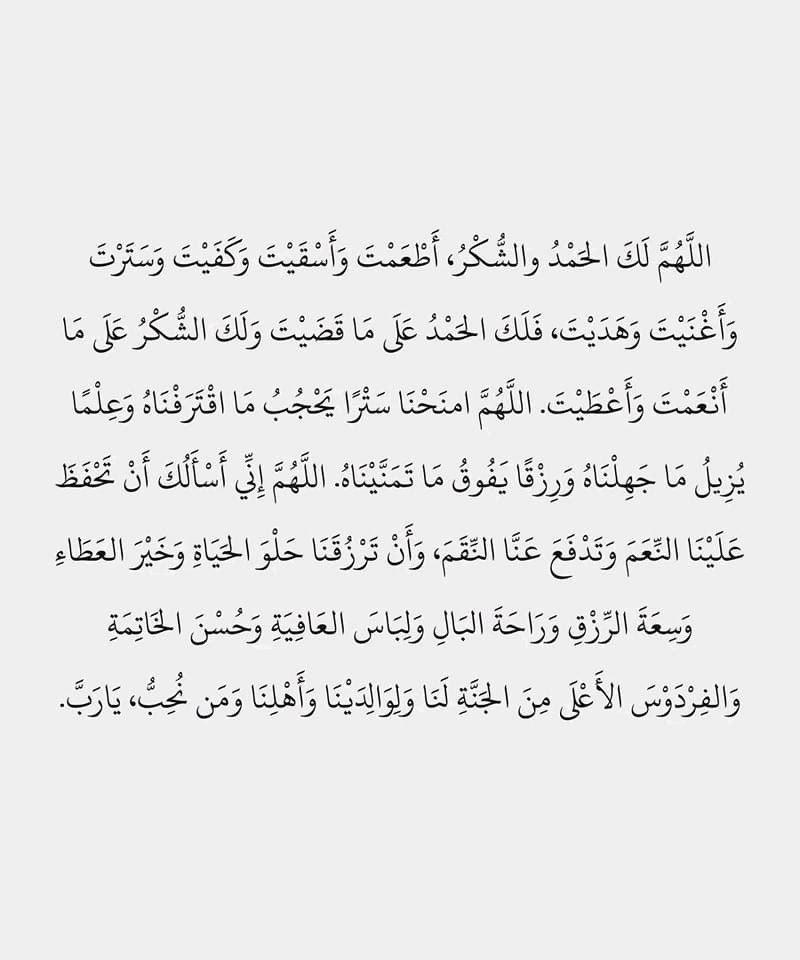 اللَّهُمَّ لَكَ الحَمْدُ والشُّكْرُ، أَطْعَمْتَ وَأَسْقَيْتَ وَكَفَيْتَ وَسَتَرْتَ
وَأَغْنَيْتَ وَهَدَيْتَ، فَلَكَ الحَمْدُ عَلَى مَا قَضَيْتَ وَلَكَ الشُّكْرُ عَلَى مَا
أَنْعَمْتَ وَأَعْطَيْتَ. اللَّهُمَّ امنَحْنَا سَتْرًا يَحْجُبُ مَا اقْتَرَفْنَاهُ وَعِلْمًا
يُزِيلُ مَا جَهِلْنَاهُ وَرِزْقًا يَفُوقُ مَا تَمَنَّيْنَاهُ. اللَّهُمَّ إِنِّي أَسْأَلُكَ أَنْ تَحْفَظَ
عَلَيْنَا النِّعَمَ وَتَدْفَعَ عَنَّا النِّقَمَ، وَأَنْ تَرْزُقَنَا حَلْوَ الحَيَاةِ وَخَيْرَ العَطَاءِ
وَسِعَةَ الرِّزْقِ وَرَاحَةَ البَالِ وَلِبَاسَ العَافِيَةِ وَحُسْنَ الخَاتِمَةِ
وَالفِرْدَوْسَ الأَعْلَى مِنَ الجَنَّةِ لَنَا وَلِوَالِدَيْنَا وَأَهْلِنَا وَمَن نُحِبُّ، يَارَبَّ.